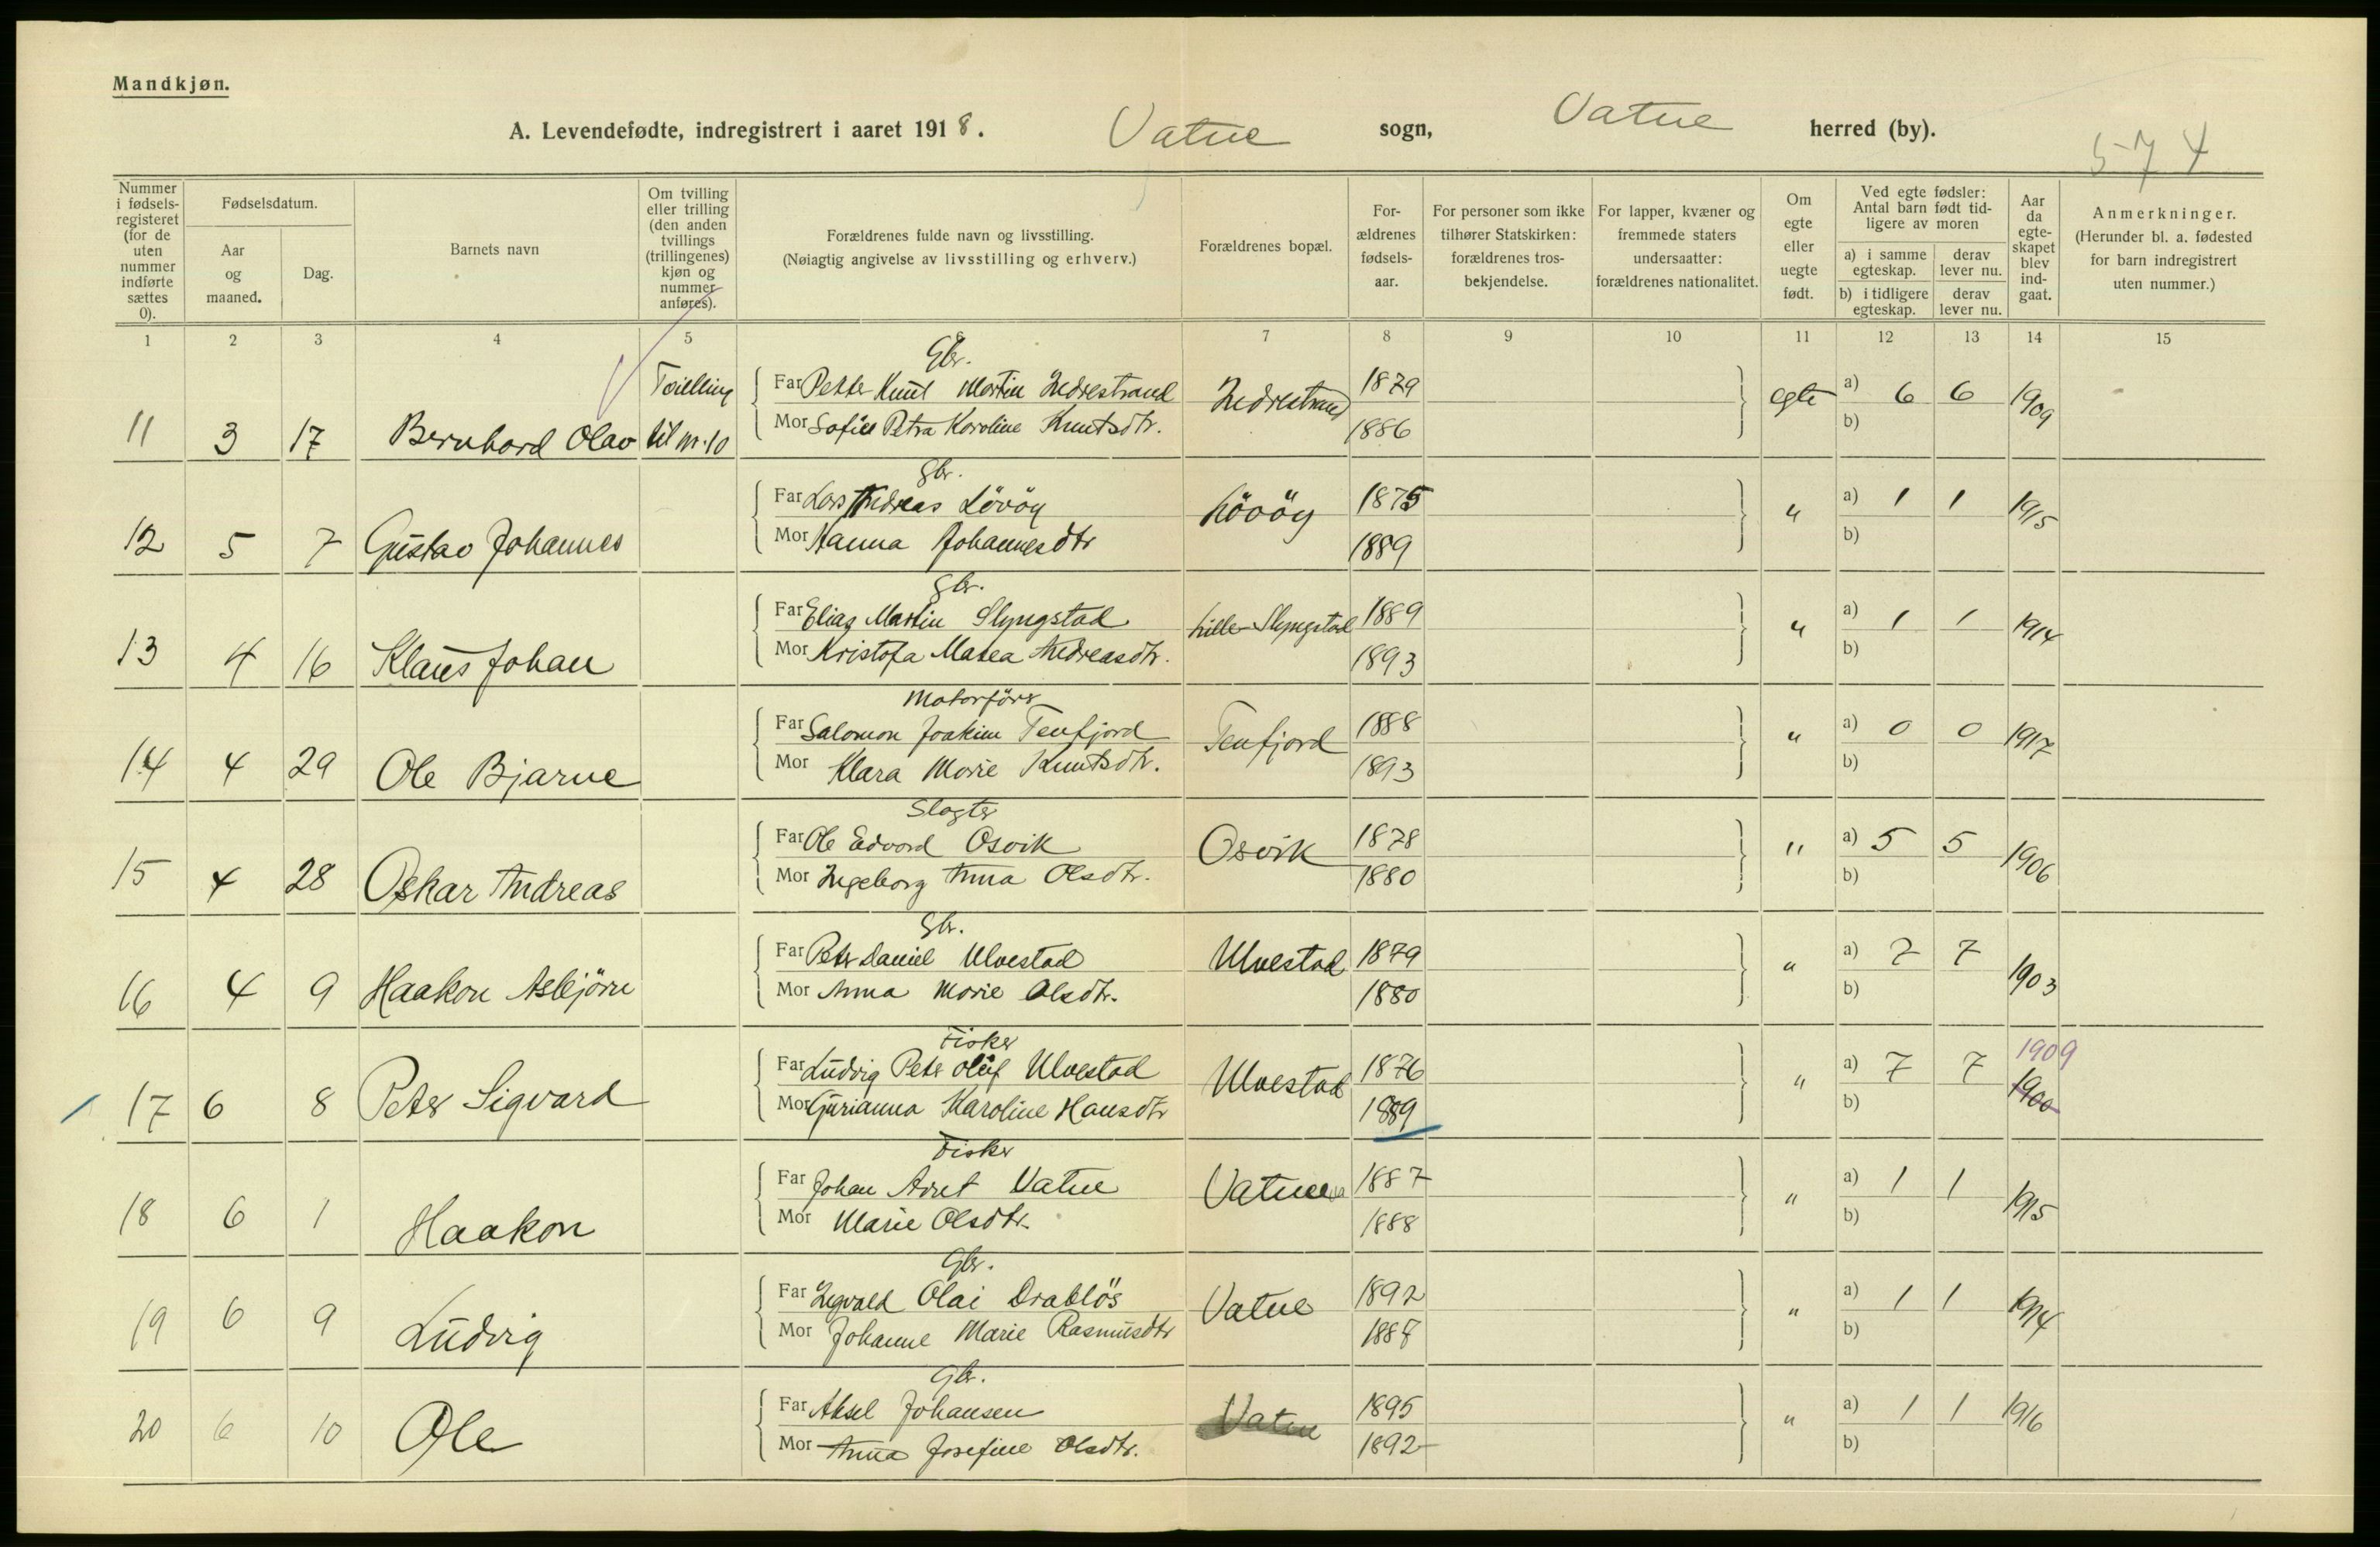 Mandkjøn.
A. Levendefødte, indregistrert i aaret 1918. Vatne sogn, Vatne herred (by).
574
Nummer i fødsels-registeret (for de uten nummer indførte sættes 0).
Fødselsdatum.
Aar og maaned.
Dag.
Barnets navn
Om tvilling eller trilling (den anden tvillings (trillingenes) kjøn og nummer anføres).
Forældrenes fulde navn og livsstilling.
(Nøiagtig angivelse av livsstilling og erhverv.)
Forældrenes bopæl.
For-ældrenes fødsels-aar.
For personer som ikke tilhører Statskirken: forældrenes tros-bekjendelse.
For lapper, kvæner og fremmede staters undersaatter: forældrenes nationalitet.
Om egte eller uegte født.
Ved egte fødsler: Antal barn født tid-ligere av moren
a) i samme egteskap.
derav lever nu.
b) i tidligere egteskap.
derav lever nu.
Aar da egte-skapet blev ind-gaat.
Anmerkninger.
(Herunder bl. a. fødested for barn indregistrert uten nummer.)
1 2 3 4 5 6 7 8 9 10 11 12 13 14 15
Gbr.
Tvilling Far Petter Knut Martin Indrestrand Indrestrand 1879 egte a) 6 6 1909
11 3 17 Bernhard Olav til nr. 10 Mor Sofie Petra Karoline Knutsdtr. 1886 b)
Gbr.
Far Lars Andreas Lövöy Lövöy 1875 " a) 1 1 1915
12 5 7 Gustav Johannes Mor Hanna Johannesdtr 1889 b)
Gbr.
Far Elias Martin Slyngstad Lille-Slyngstad 1889 " a) 1 1 1914
13 4 16 Klaus Johan Mor Kristofa Matea Andreasdtr. 1893 b)
Motorförer
Far Salomon Joakim Tenfjord Tenfjord 1888 " a) 0 0 1917
14 4 29 Ole Bjarne Mor Klara Marie Knutsdtr. 1893 b)
Slagter
Far Ole Edvard Osvik Osvik 1878 " a) 5 5 1906
15 4 28 Oskar Andreas Mor Ingeborg Anna Olsdtr. 1880 b)
Gbr.
Far Peter Daniel Ulvestad Ulvestad 1879 " a) 7 7 1903
16 4 9 Haakon Asbjörn Mor Anna Marie Olsdtr. 1880 b)
Fisker
Far Ludvig Peter Oluf Ulvestad Ulvestad 1876 " a) 7 7 1909 1900
17 6 8 Peter Sigvard Mor Gurianna Karoline Hansdtr 1889 b)
Fisker
Far Johan Vatne Vatne 1887 " a) 1 1 1915
18 6 1 Haakon Mor Marie Olsdtr. 1888 b)
Gbr.
Far Ingvald Olai Drabløs Vatne 1892 " a) 1 1 1914
19 6 9 Ludvig Mor Johanne Marie Rasmusdtr 1888 b)
Gbr.
Far Aksel Johansen Vatne 1895 " a) 1 1 1916
20 6 10 Ole Mor Anna Josefine Olsdtr. 1892 b)